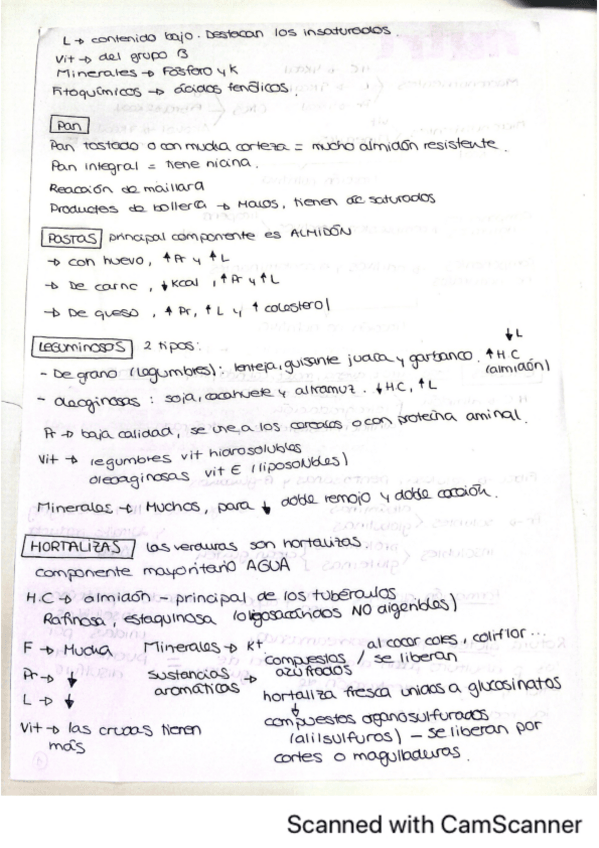 L → contenido bajo. Destacan los insaturados.
Vit → del grupo B
Minerales → Fósforo y K
Fitoquímicos → ácidos fenólicos.
Pan
Pan tostado o con mucha corteza = mucho almidón resistente.
Pan integral = tiene niacina.
Reacción de maillard
Productos de bollería → Malos, tienen ác saturados
PASTAS principal componente es ALMIDÓN
→ con huevo, ↑ Pr y ↑ L
→ De carne, ↓ Kcal, ↑ Pr y ↑ L
→ De queso, ↑ Pr, ↑ L y ↑ colesterol
LEGUMINOSOS 2 tipos:
- De grano (legumbres): lenteja, guisante judía y garbanzo. ↑ HC ↓ L (almidón)
- oleaginosas: soja, cacahuete y altramuz. ↓ HC, ↑ L
Pr → baja calidad, se une a los cereales o con proteína animal.
Vit → legumbres vit hidrosolubles
oleoaginosas vit E (liposolubles)
Minerales → Muchos, para ↓ doble remojo y doble cocción.
HORTALIZAS las verduras son hortalizas
componente mayoritario AGUA
H.C → almidón - principal de los tubérculos
Rafinosa, estaquinosa (oligosacáridos NO digeribles)
F → Mucha
Pr → ↓
L → ↓
Vit → las crudas tienen
más
Minerales → K+
sustancias aromáticas → compuestos azufrados / al cocer coles, coliflor... se liberan
hortaliza fresca unidos a glucosinatos
↓
compuestos organosulfurados
(alilsulfuros) - se liberan por
cortes o magulladuras.
Scanned with CamScanner